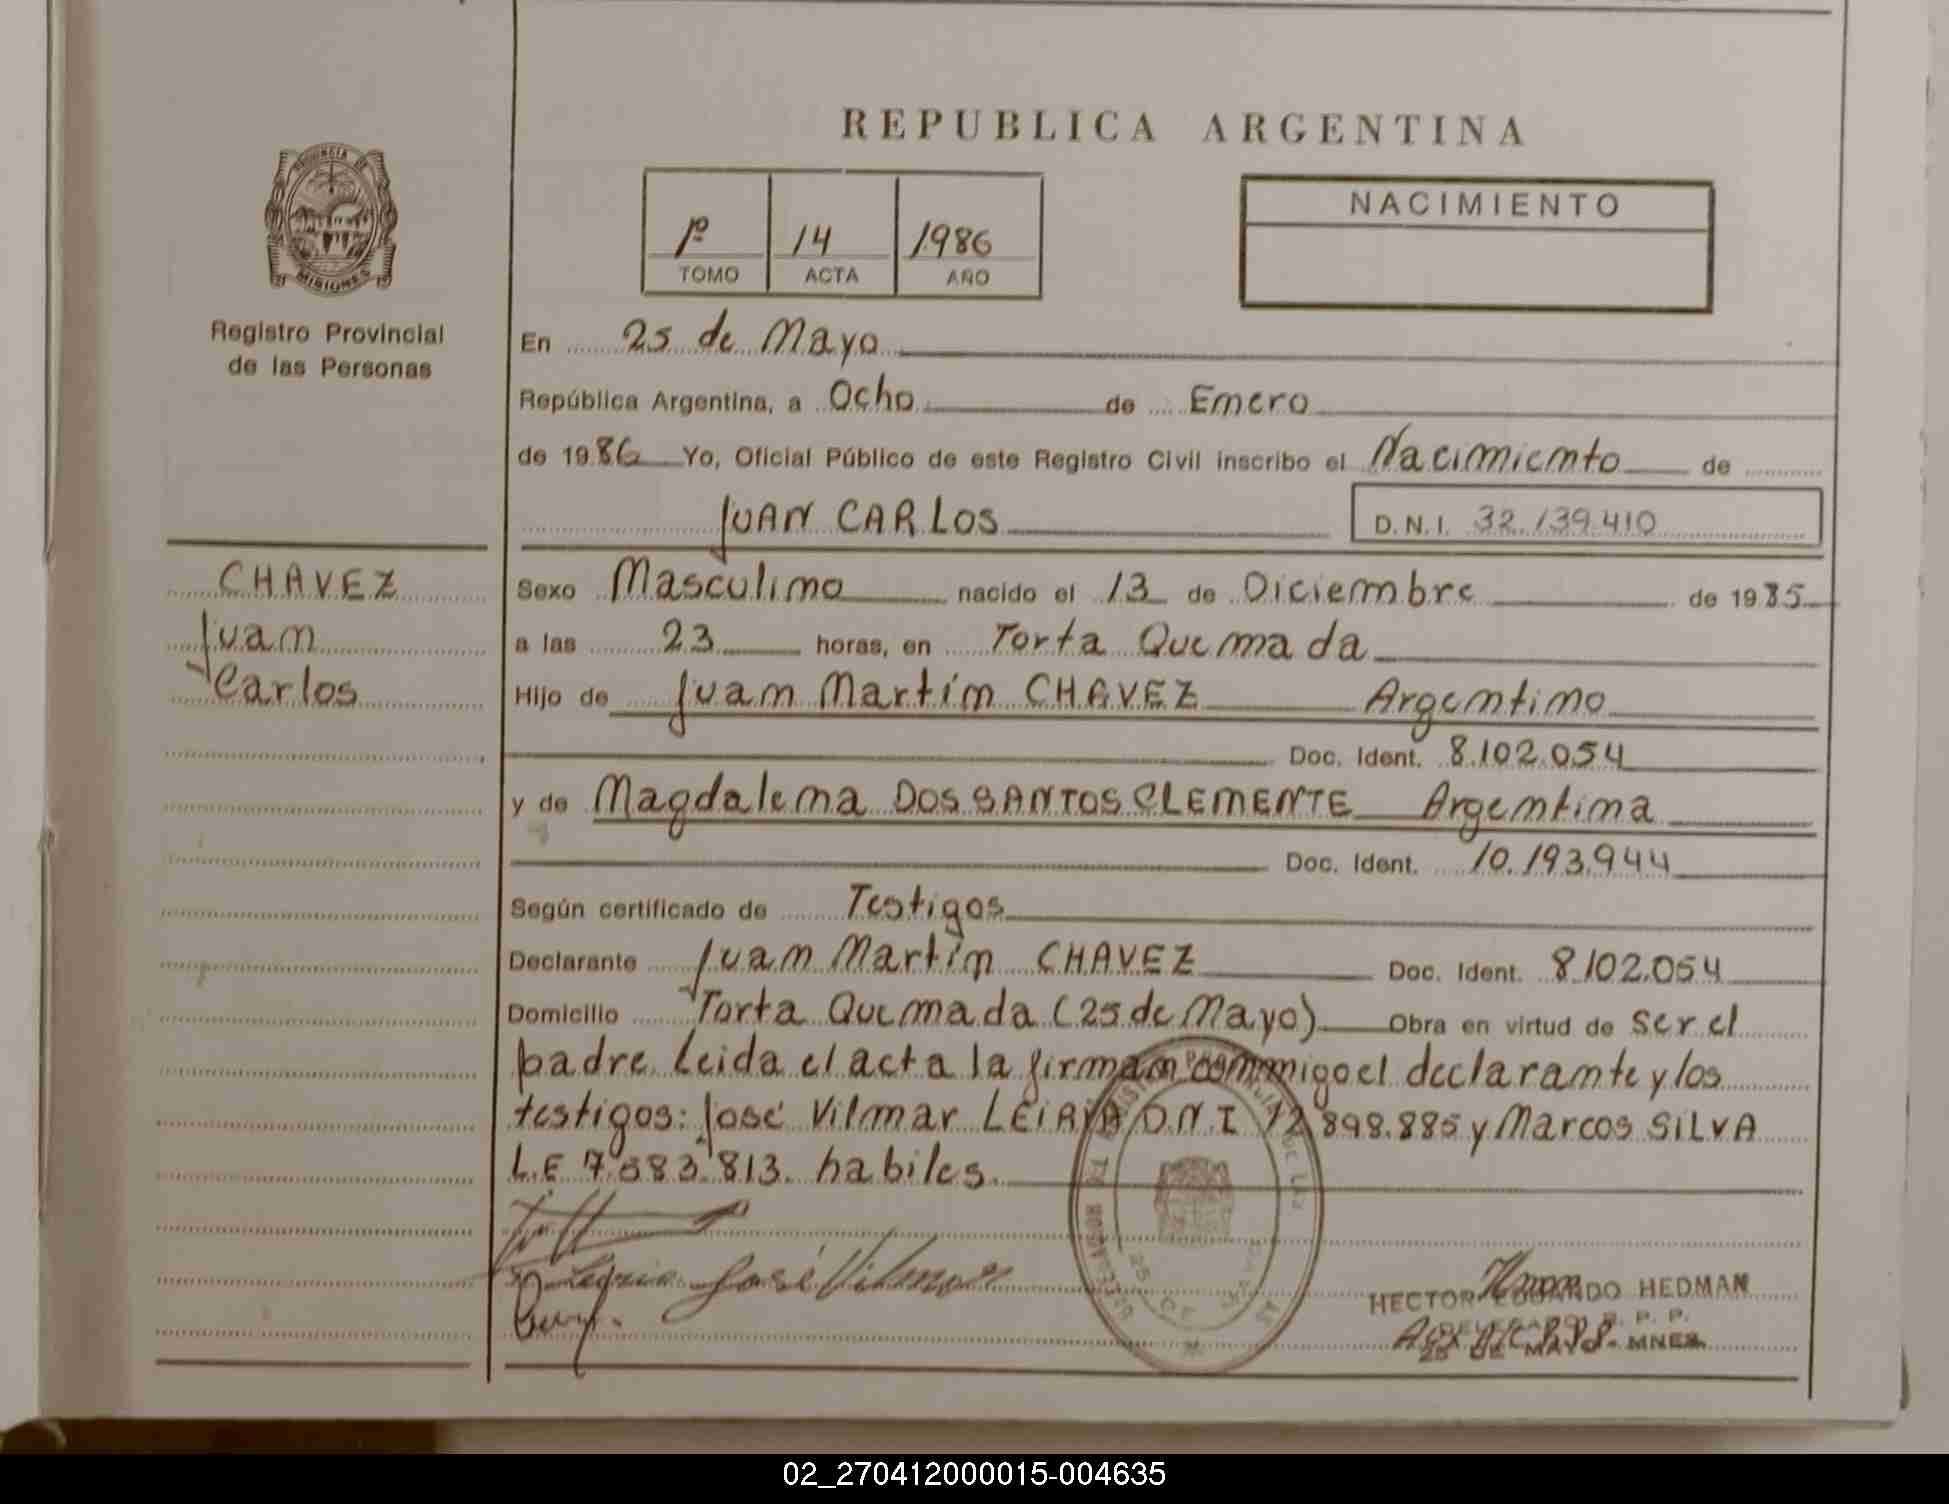 REPUBLICA ARGENTINA
PROVINCIA DE MISIONES
Registro Provincial
de las Personas
1º 14 1986
TOMO ACTA AÑO
NACIMIENTO
En 25 de Mayo
República Argentina, a Ocho de Enero
de 1986 Yo, Oficial Público de este Registro Civil inscribo el Nacimiento de
JUAN CARLOS D.N.I. 32.139.410
CHAVEZ
Juan
Carlos
Sexo Masculino nacido el 13 de Diciembre de 1985
a las 23 horas, en Torta Quemada
Hijo de Juan Martín CHAVEZ Argentino
Doc. Ident. 8.102.054
y de Magdalena DOS SANTOS CLEMENTE Argentina
Doc. Ident. 10.193.944
Según certificado de Testigos
Declarante Juan Martín CHAVEZ Doc. Ident. 8.102.054
Domicilio Torta Quemada (25 de Mayo) Obra en virtud de ser el
padre. Leida el acta la firman conmigo el declarante y los
testigos: José Vilmar LEIRIA D.N.I 12.898.885 y Marcos SILVA
L.E 7.683.813. habiles.
José Vilmar
HECTOR EDUARDO HEDMAN
DELEGADO R. P. P.
25 DE MAYO - MNES.
02_270412000015-004635